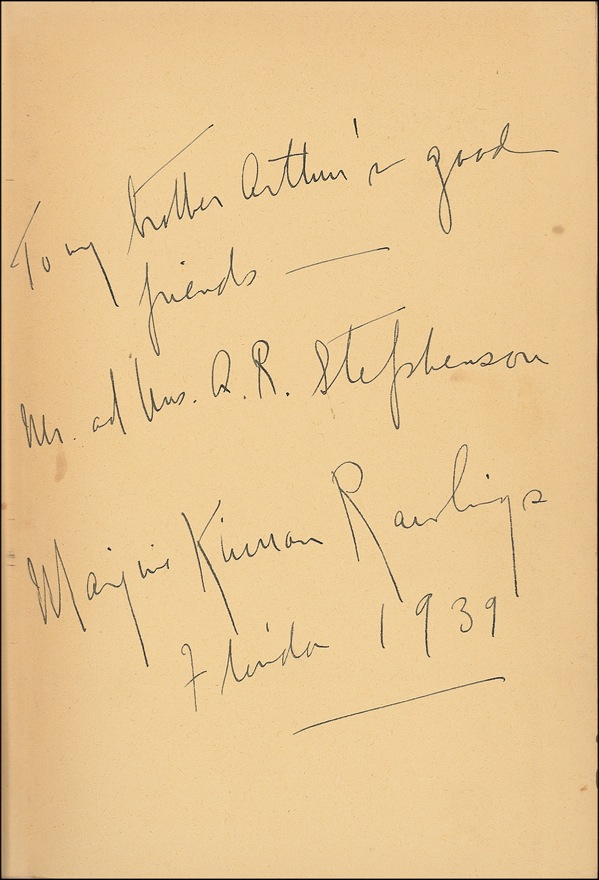 To my brother Arthur's good
friends —
Mr. and Mrs. A. R. Stephenson
Marjorie Kinnan Rawlings
Florida 1939